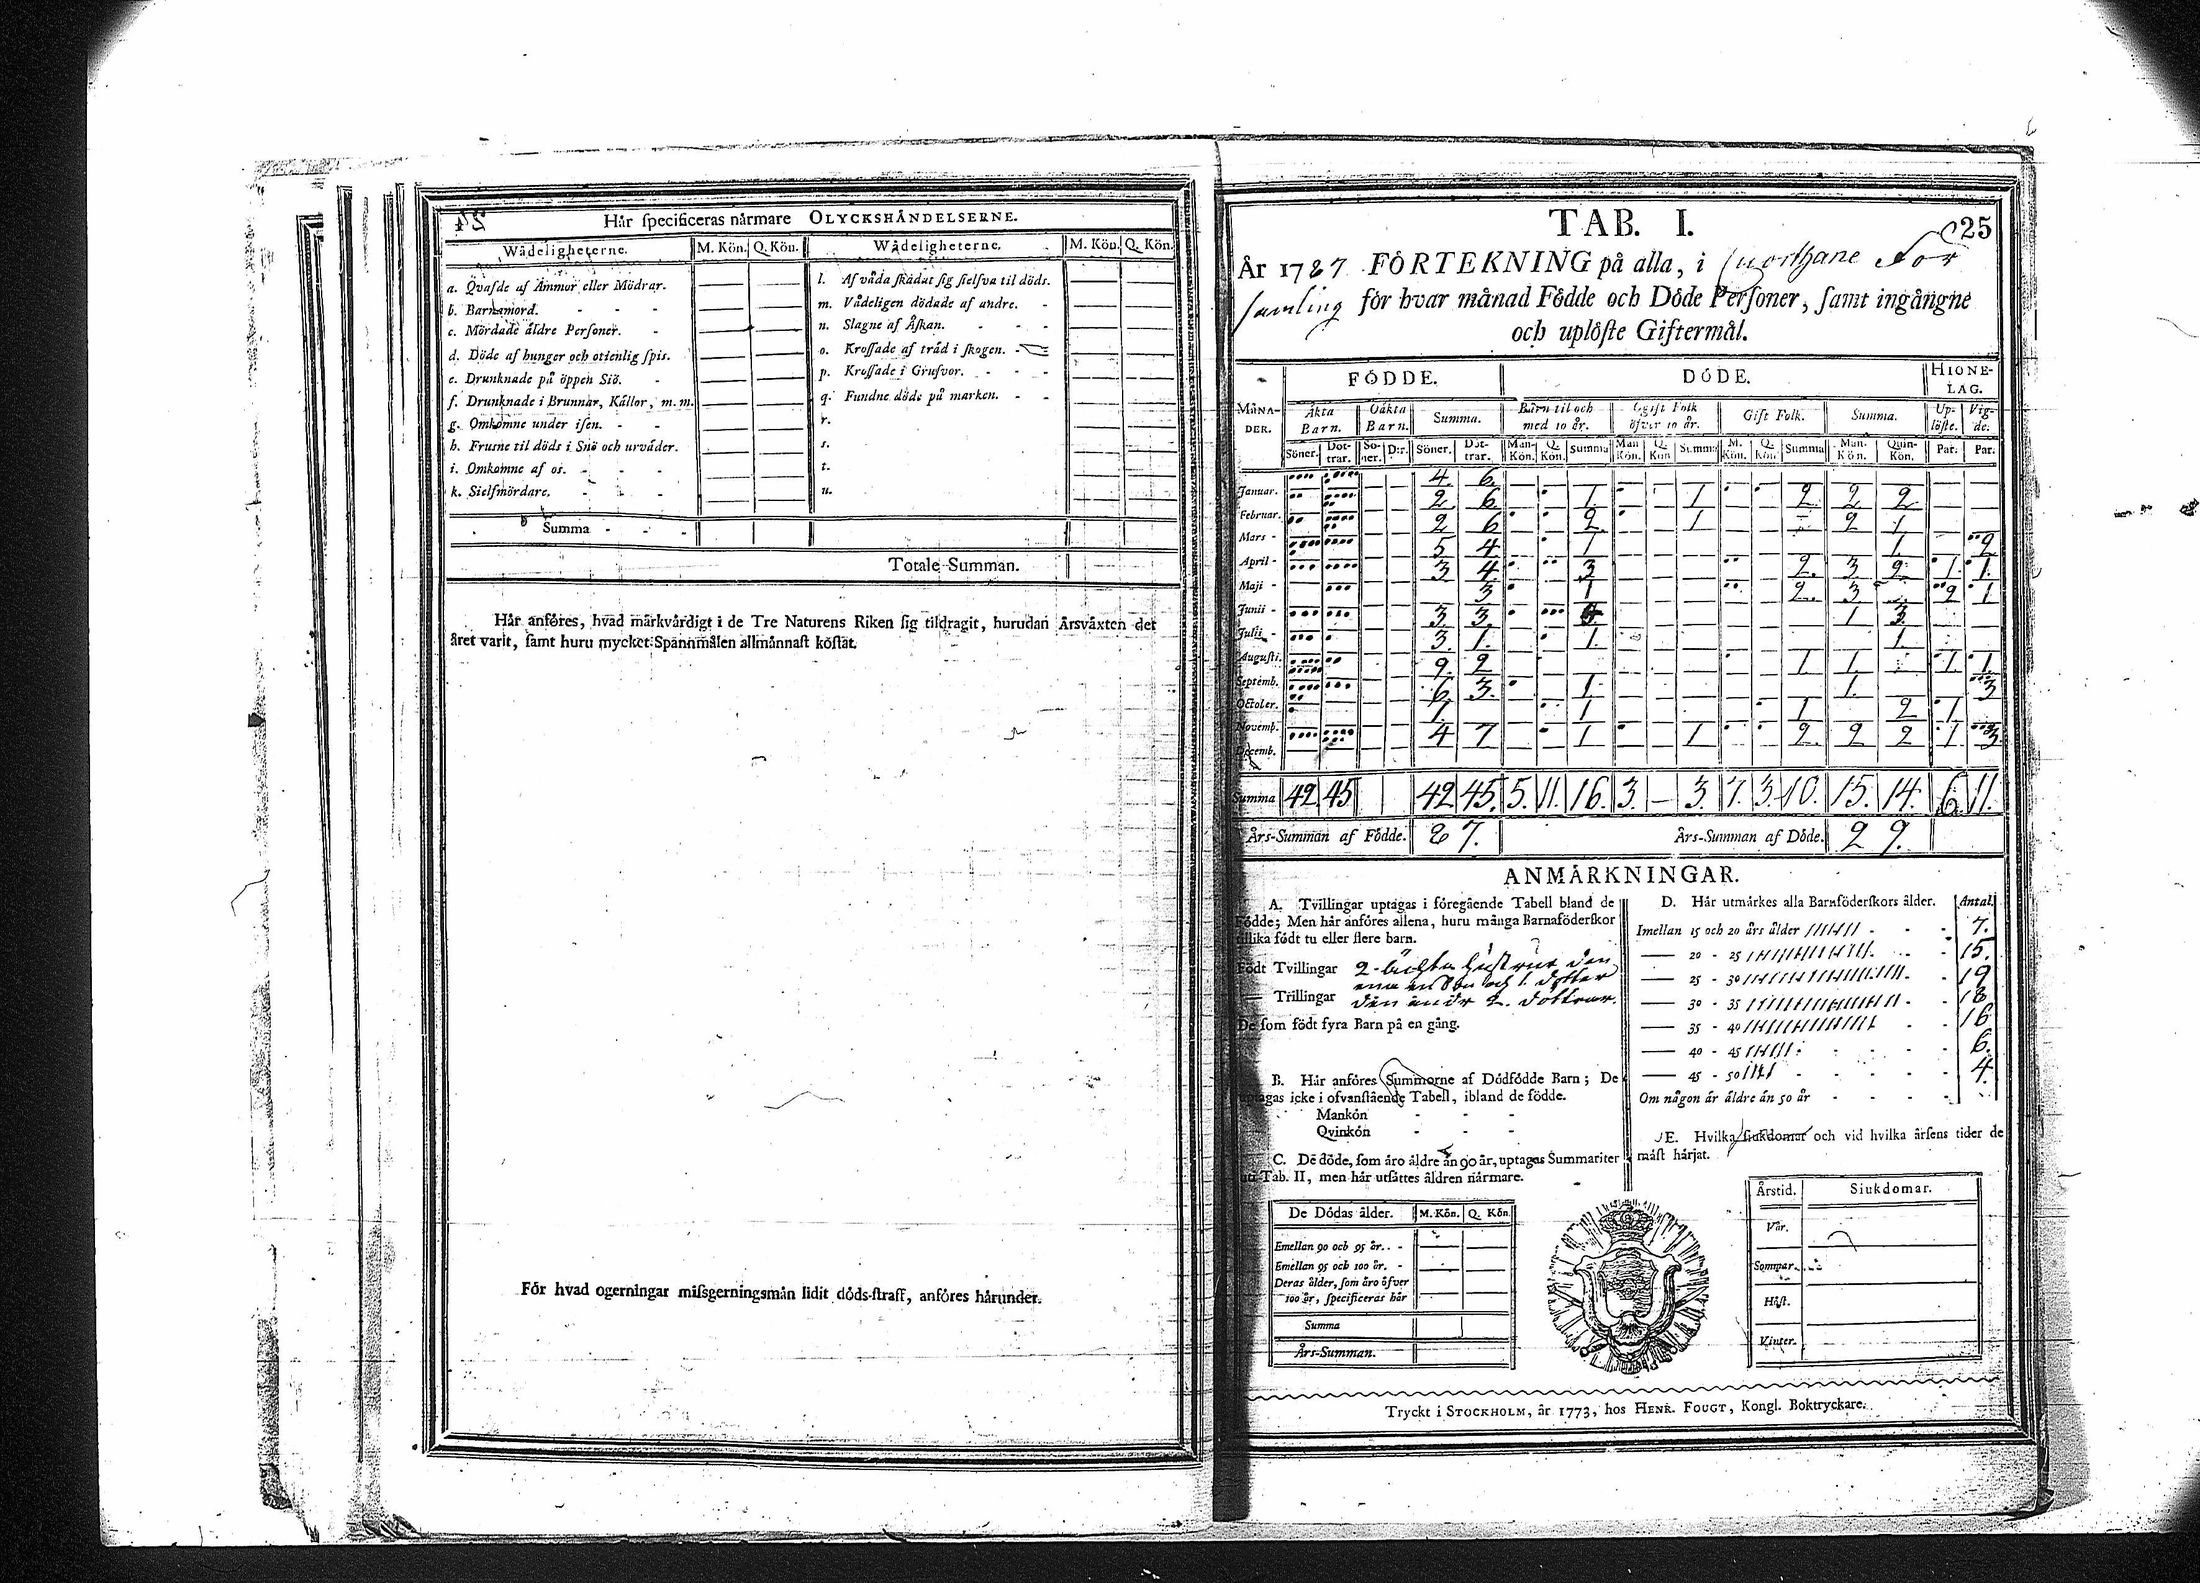 24
Här specificeras närmare OLYCKSHÄNDELSERNE.
Wådeligheterne. M. Kön. Q. Kön. Wådeligheterne. M. Kön. Q. Kön.
a. Qvafde af Ammor eller Mödrar.
b. Barnamord.
c. Mördade äldre Personer.
d. Döde af hunger och otienlig spis.
e. Drunknade på öppen Siö.
f. Drunknade i Brunnar, Källor, m. m.
g. Omkomne under isen.
h. Frusne til döds i Snö och urväder.
i. Omkomne af os.
k. Sielfmördare.
Summa
l. Af våda skadat sig sielfva til döds.
m. Vådeligen dödade af andre.
n. Slagne af Åskan.
o. Krossade af träd i skogen.
p. Krossade i Grufvor.
q. Fundne döde på marken.
r.
s.
t.
u.
Totale Summan.
Här anföres, hvad märkvärdigt i de Tre Naturens Riken sig tildragit, hurudan Årsväxten det
året varit, samt huru mycket Spannmålen allmännast kostat.
För hvad ogerningar missgerningsmän lidit döds-straff, anföres härunder.
25
TAB. I.
År 1787 FÖRTEKNING på alla, i För
samling för hvar månad Födde och Döde Personer, samt ingångne
och uplöste Giftermål.
MÅNA-
DER.
FÖDDE. DÖDE. HIONE-
LAG.
Äkta
Barn. Oäkta
Barn. Summa. Barn til och
med 10 år. Ogift Folk
öfver 10 år. Gift Folk. Summa. Up-
löste. Vig-
de.
Söner. Döt-
trar. Sö-
ner. D:r. Söner. Döt-
trar. Man-
Kön. Q.
Kön. Summa Man
Kön. Q.
Kön Summa M.
Kön. Q.
Kön. Summa Man.
Kön. Quin-
Kön. Par. Par.
Januar. 4. 6.
Februar. 2 6 1 1 2 2 2
Mars 2 6 2 1 2 1
April 5 4 1 1 2
Maji 3 4 3 2. 3 2 1. 1.
Junii 3 1 2. 3 2 1
Julii 3 3 1 3
Augusti. 3. 1. 1. 1.
Septemb. 9. 2 1 1. 1. 1.
October. 6 3. 1. 1. 3
Novemb. 1. 1 1 2 1
Decemb. 4 7 1 1 2. 2 2 1 3.
Summa 42 45 42 45. 5. 11. 16. 3. — 3. 7. 3. 10. 15. 14. 6. 11.
Års-Summan af Födde. 87. Års-Summan af Döde. 29.
ANMÄRKNINGAR.
A. Tvillingar uptagas i föregående Tabell bland de
Födde; Men här anföres allena, huru många Barnaföderskor
tillika födt tu eller flere barn.
Födt Tvillingar 2 hustrur den
ena en Son och 1. dotter
— Trillingar den andr 2. döttrar.
De som födt fyra Barn på en gång.
B. Här anföres Summorne af Dödfödde Barn; De
uptagas icke i ofvanstående Tabell, ibland de födde.
Mankön
Qvinkön
C. De döde, som äro äldre än 90 år, uptagas Summariter
uti Tab. II, men här utsättes åldren närmare.
De Dödas ålder. M. Kön. Q. Kön.
Emellan 90 och 95 år.
Emellan 95 och 100 år.
Deras ålder, som äro öfver
100 år, specificeras här
Summa
Års-Summan.
D. Här utmärkes alla Barnföderskors ålder. Antal.
Imellan 15 och 20 års ålder 7.
— 20 - 25 15.
— 25 - 30 19
— 30 - 35 18
— 35 - 40 16
— 40 - 45 6.
— 45 - 50 4.
Om någon är äldre än 50 år
E. Hvilka siukdomar och vid hvilka årsens tider de
mäst härjat.
Årstid. Siukdomar.
Vår.
Sommar.
Höst.
Vinter.
Tryckt i STOCKHOLM, år 1773, hos HENR. FOUGT, Kongl. Boktryckare.